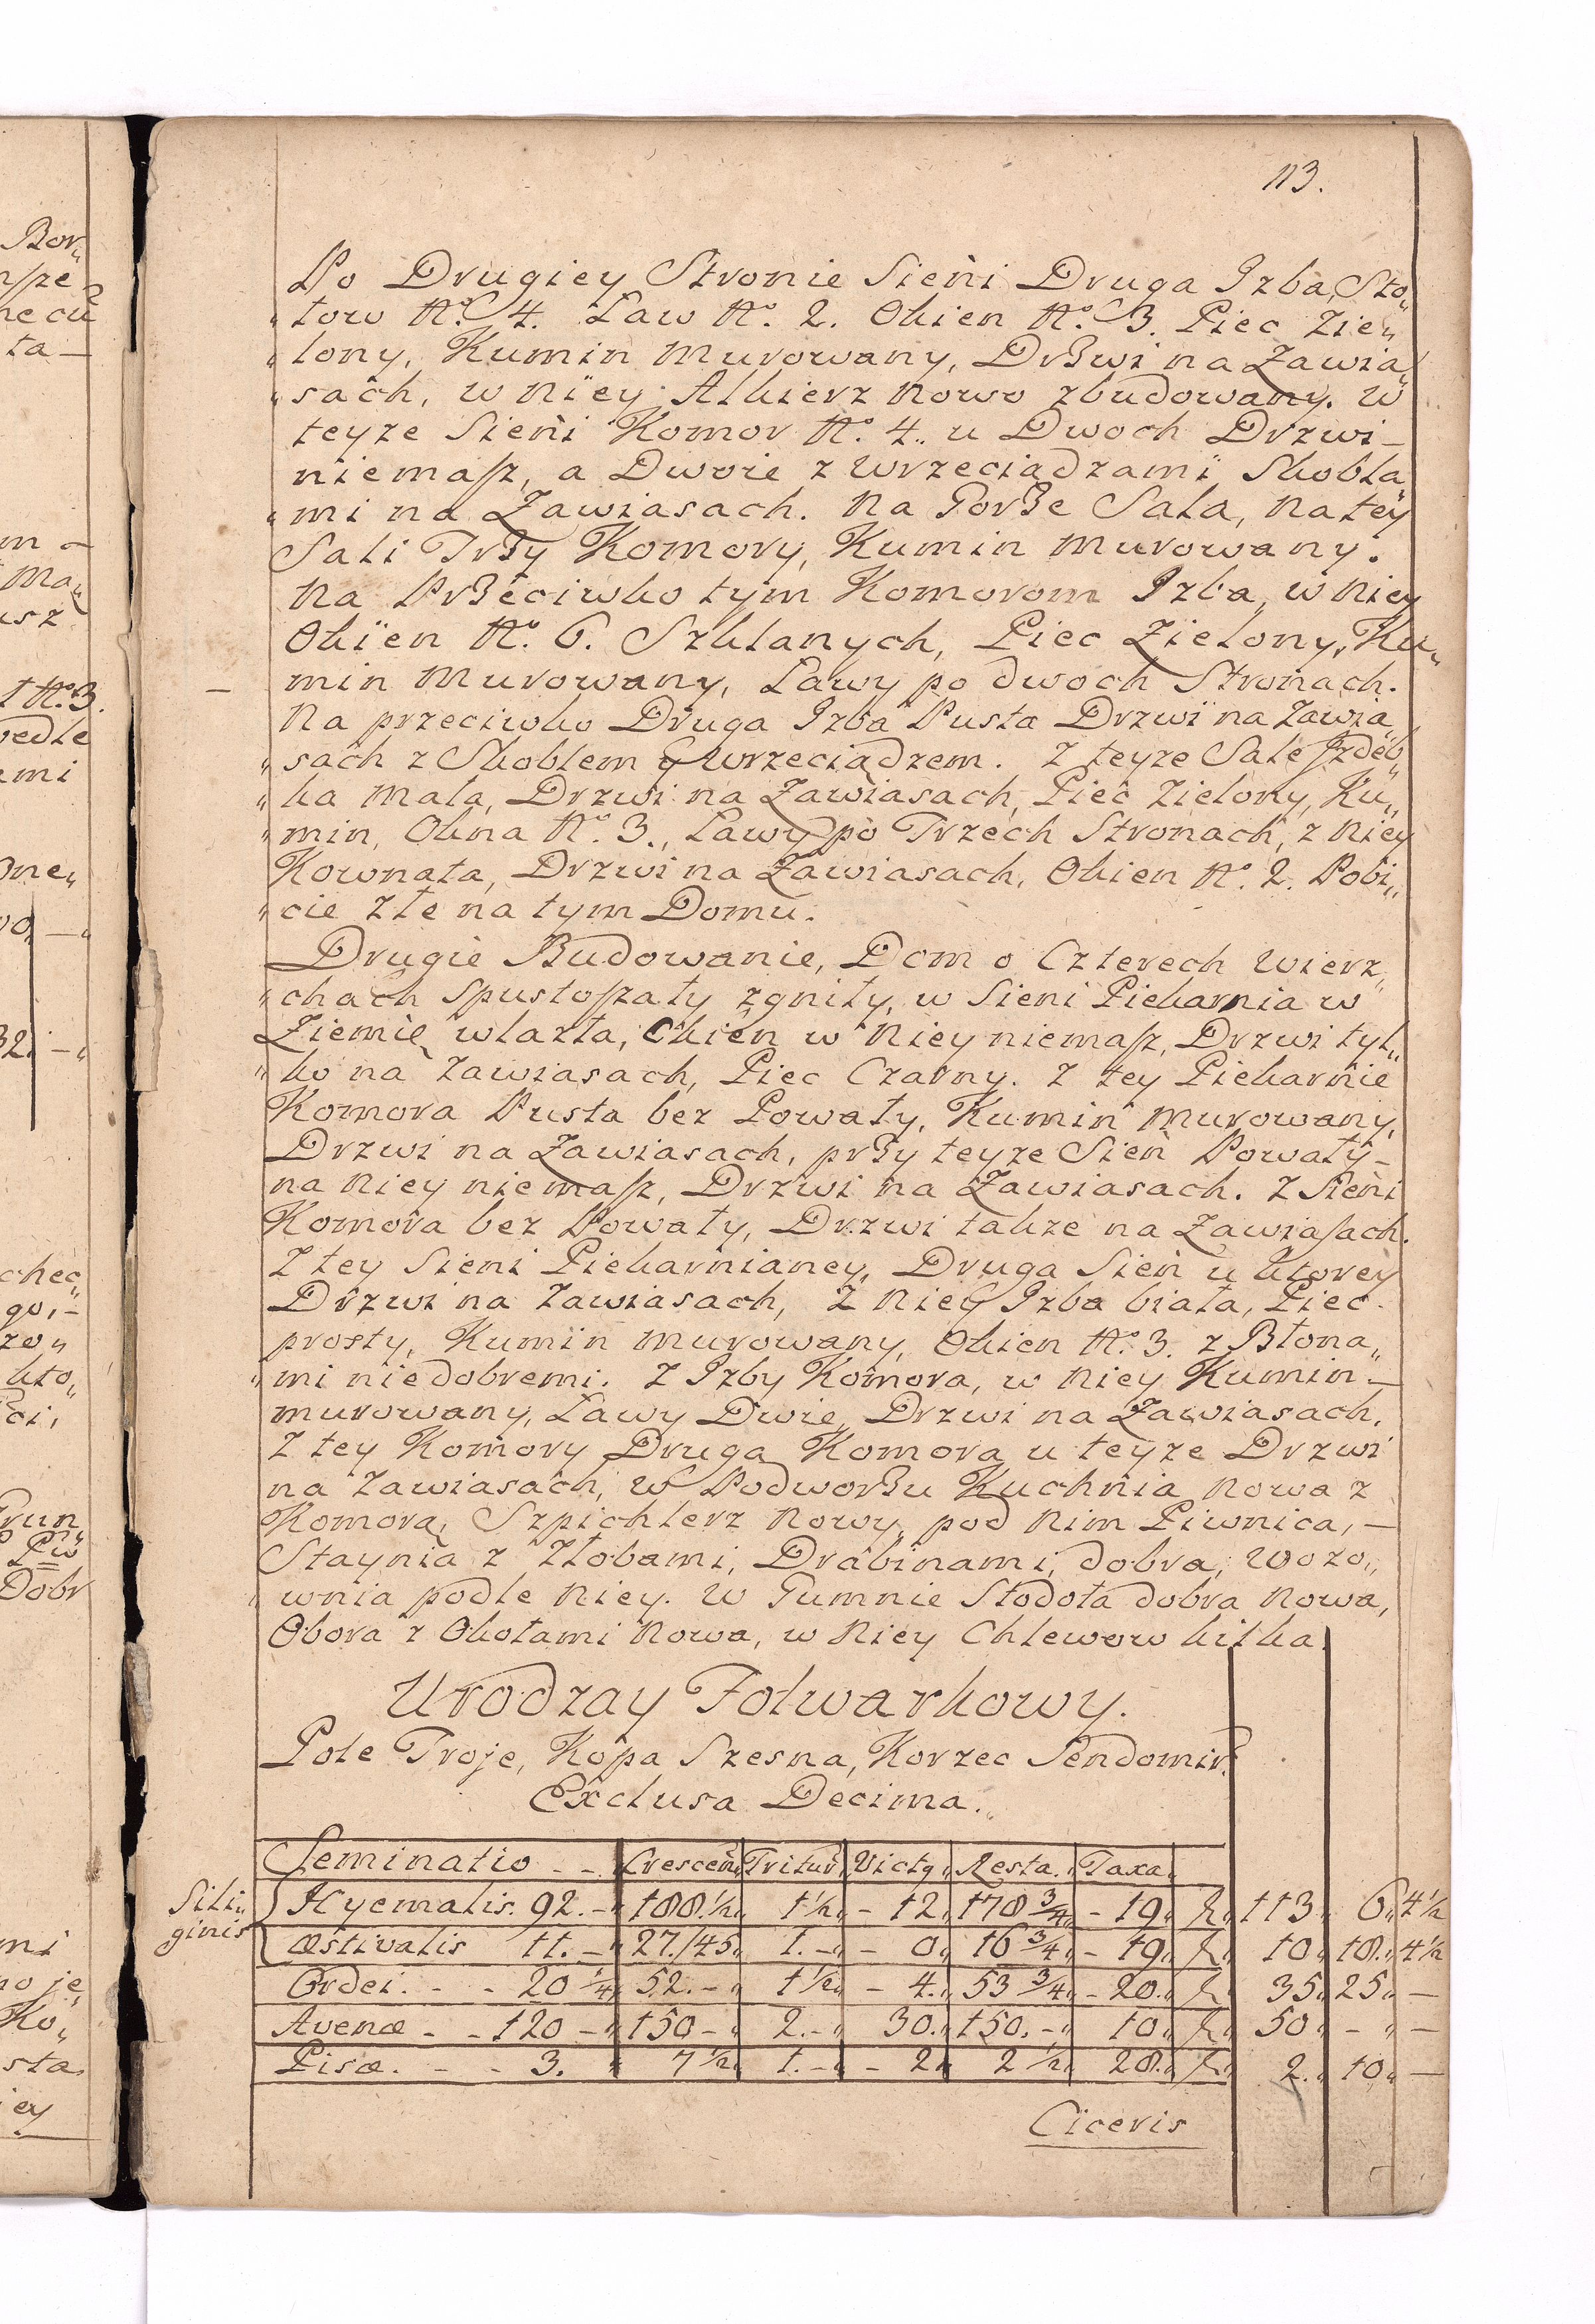 113.
Po Drugiey Stronie Sieni Druga Izba, Sto„
„łow No. 4. Ław No. 2. Okien No. 3. Piec Zie„
„lony, Kumin Murowany, Drzwi na Zawia„
„sach, w Niey Alkierz Nowo zbudowany. W
teyze Sieni Komor No. 4. u Dwoch Drzwi –
niemasz, a Dwoie z Wrzeciądzami Skobla„
„mi na Zawiasach. Na Gorze Sala, Na tey
Sali Trzy Komory, Kumin Murowany.
Na Przeciwko tym Komorom Izba, w Niey
Okien No. 6. Szklanych, Piec Zielony, Ku„
min Murowany, Ławy po dwoch Stronach.
Na przeciwko Druga Izba Pusta Drzwi na Zawia„
„sach z Skoblem y Wrzeciądzem. Z teyze Sale Izdeb„
„ka Mała, Drzwi na Zawiasach, Piec Zielony, Ku„
„min, Okna No. 3., Ławy po Trzech Stronach, z Niey
Kownata, Drzwi na Zawiasach, Okien No. 2. Pobi„
„cie Złe na tym Domu.
Drugie Budowanie, Dom o Czterech Wierz„
„chach Spustoszały zgniły, w Sieni Piekarnia w
Ziemię wlazła, Okien w Niey niemasz, Drzwi tyl„
„ko na Zawiasach, Piec Czarny. Z tey Piekarnie
Komora Pusta bez Powały, Kumin Murowany,
Drzwi na Zawiasach, przy teyze Sień Powały –
na Niey niemasz, Drzwi na Zawiasach. Z Sieni
Komora bez Powały, Drzwi takze na Zawiasach.
Z tey Sieni Piekarnianey, Druga Sień u ktorey
Drzwi na Zawiasach, Z Niey Izba biała, Piec
prosty, Kumin Murowany, Okien No. 3. z Błona„
„mi niedobremi. Z Izby Komora, w Niey Kumin –
murowany, Ławy Dwie, Drzwi na Zawiasach.
Z tey Komory Druga Komora u teyze Drzwi
na Zawiasach, w Podworzu Kuchnia Nowa z
Komorą, Szpichlerz Nowy, pod Nim Piwnica, –
Staynia z Złobami, Drabinami, dobra, Wozo„
„wnia podle Niey. W Gumnie Stodoła dobra Nowa,
Obora z Okołami Nowa, w Niey Chlewow kilka.
Urodzay Folwarkowy.
Pole Troje, Kopa Szesna, Korzec Sendomir.
Exclusa Decima.
Seminatio - - Crescen. Tritur. Victq. Resta. Taxa.
Sili„
ginis
Hyemalis. 92. – 188.½ 1½ – 12. 178¾ – 19. f. 113. 6. 4½
Æstivalis 11. – 27./45. 1. – – 0. 16¾ – 19. f. 10. 18. 4½
Ordei. - - 20¼ 52. – 1½ – 4. 53¾ – 20. f. 35. 25. –
Avenæ - - 120 – 150 – 2. – 30. 150. – 10. f. 50. – –
Pisæ. - - 3. 7½ 1. – – 2. 2½ 28. f. 2. 10. –
Ciceris